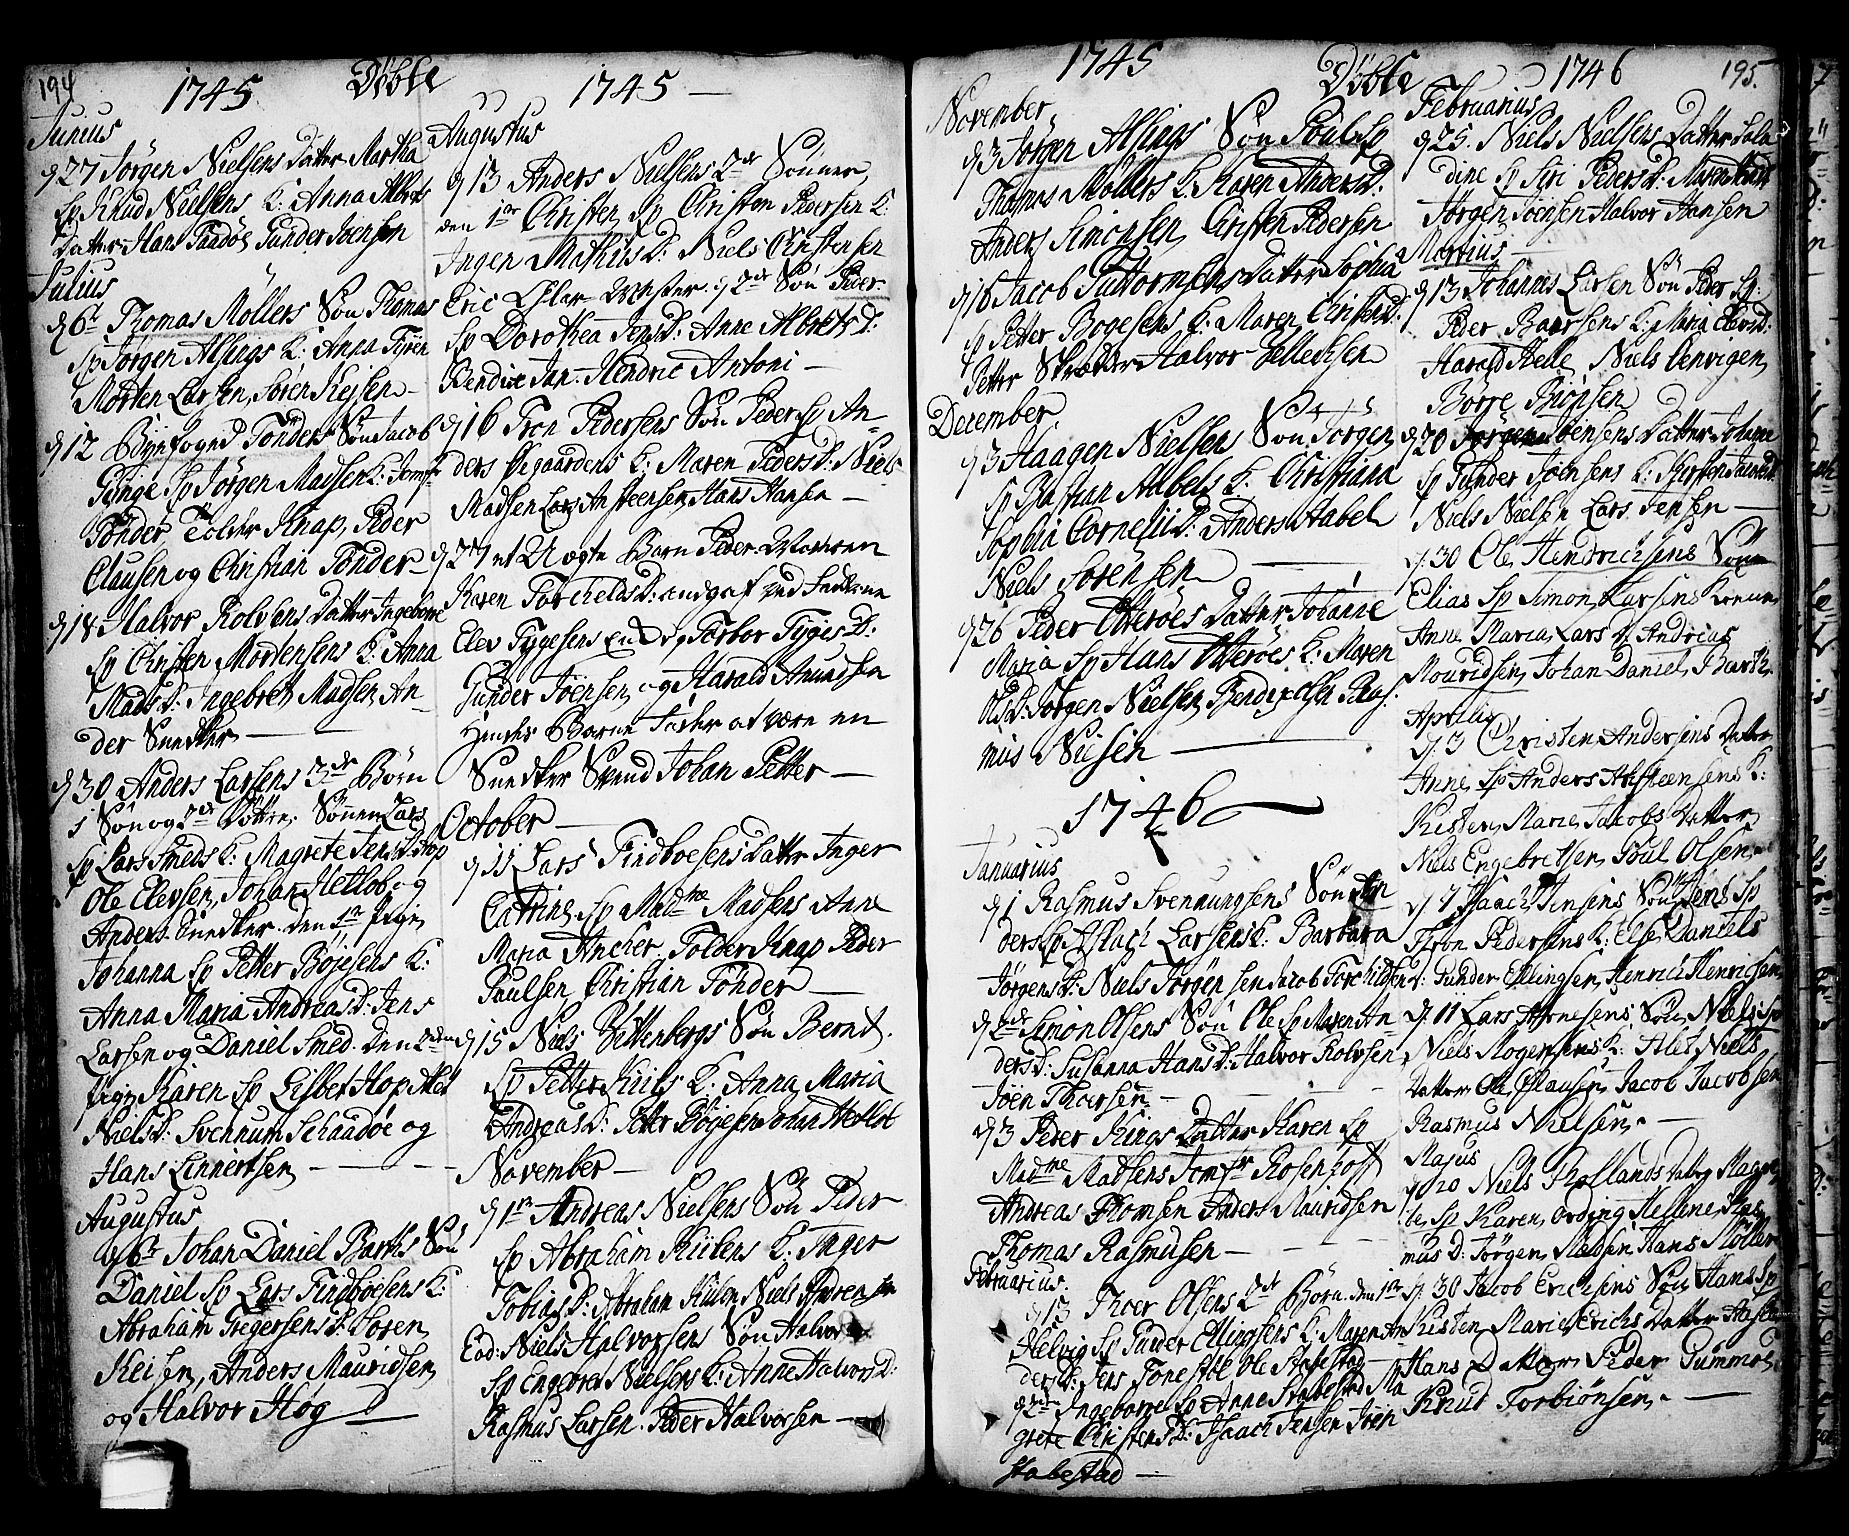 194
1745 Döbte 1745
Junius
d 27 Jörgen Nielsens Datter Martha
Sp Knud Nielsens K: Anna Alberts
Datter Hans Gunder Joensen
Julius
d 6te Thomas Möllers Sön Thomas
Sp Jörgen Alsings K: Anna
Morten Larsen, Sören Keisen
d 12 Byefoged Tönders Sön Jacob
Sp Jörgen Madsen K: Jomfr
Tönder Tolder Knap, Peder
Clausen og Christian Tönder
d 18 Halvor Rolvsens Datter Ingeborre
Sp Christen Mortensens K: Anna
Mads D: Ingebret Madsen An-
der Snedker
d 30 Anders Larsens 3de Börn
1 Sön og 2de Döttre, Sönnen Lars
Sp Lars Smeds K: Magrete Jens D: Hop
Ole Elevsen, Johan Hetlob og
Anders Snedker. den 1te pige
Johanna Sp Petter Böjesens K:
Anna Maria Andreas D: Jens
Larsen og Daniel Smed. den 2den
pige Karen Sp Lisbet Hop Alet
Niels D: Svennum Schaadöe og
Hans Linnertsen
Augustus
d 6te Johan Daniel Barths Sön
Daniel Sp Lars Findboesens K:
Abraham Gregersens D: Sören
Keisen, Anders Mauridsen
og Halvor Høg
Augustus
d 13 Anders Nielsens 2de Sönner,
den 1te Christen Sp Christen Pedersen K:
Ingen Mathis D: Niels Christensen
Eric 2de Sön Peder
Sp Dorothea Jens D: Anne Albrets D:
Bendixe Jan Hendric Antoni
d 16 Tron Pedersens Sön Peder Sp An-
ders Øegaardens K: Maren Peders D: Niels
Madsen Lars Ansteensen Hans Hansen
d 27 et Uægte Barn Peder Moderen
Karen Torchelds D: Faderne
Elev Tygesens og Torbor Tyges D:
Gunder Joensen og Harald Amundsen
Hendes Barne Fader at være en
Snedker Svend Johan Petter
October
d 11 Lars Findboesens Datter Inger
Catrine Sp Madme Madsens Anne
Maria Ancher, Tolder Knap Peder
Paulsen, Christian Tönder
d 15 Niels Bettenbergs Sön Bernt.
Sp Petter Kiils K: Anna Maria
Andreas D: Petter Böjesen Johan Hetlöt
November
d 1te Andreas Nielsens Sön Peder
Sp Abraham Kiilens K: Inger
Tobias D: Abraham Kiilen Niels Andreasen
Eod: Niels Halvorsens Sön Halvor
Sp Engebret Nielsens K: Anne Halvors D:
Rasmus Larsen. Peder Halvorsen
195.
1745 Döbte 1746
November
d 3 Jörgen Alsings Sön Poul Sp
Thomas Möllers K: Karen Anders D:
Anders Simonsen, Christen Pedersen
d 16 Jacob Guttormsens Datter Sophia
Sp Petter Bogesens K: Maren Christens D:
Petter Skræder Halvor Jellechsen
December
d 3 Haagen Nielsens Sön Jörgen
Sp Bastian Aabels K: Christiana
Sophia Cornelii D: Anders Aabel
Niels Sörensen
d 26 Peder Otteröes Datter Johanne
Maria Sp Hans Otteröes K: Maren
Ols D: Jörgen Nielsen, Bendix Olsen Ras-
mus Nielsen
1746
Januarius
d 1 Rasmus Svennungsens Sön An-
ders Sp Aslach Larsens K: Barbara
Jörgens D: Niels Jörgensen Jacob Torchildsen
d 2de Simon Olsens Sön Ole Sp Maren An-
ders D: Susanna Hans D: Halvor Rolvsen
Joen Thorsen
d 3 Peder Kings Datter Karen Sp
Madme Madsens Jomfr Rosenhoff
Andreas Thomsen Anders Mauridsen
Thomas Rasmusen
Februarius.
d 13 Thoer Olsens 2de Börn. den 1te
Helvig Sp Gunder Ellingsens K: Maren An
ders D: Jens Ole Stabestad
d 2den Ingeborre Sp Anne Stabestad Ma
grete Christens D: Isaach Jensen Joen
Stabestad
Februarius
d 25. Niels Nielsens Datter
dine Sp Siri Peders D: Maren
Jörgen Joensen Halvor Hansen
Martius
d 13 Johannes Larsen Sön Peder Sp:
Peder Baarsens K: Maria Elevs D:
Harald Helle, Niels Cenvigen
Börre Biönsen
d 20 Jörgen Joensens Datter Johanne
Sp Gunder Joensens K: Kiersten
Niels Nielsen Lars Jensen
d. 30 Ole Hendrichsens Sön
Elias Sp Simon Larsens Konne
Anne Maria Lars D. Andreas
Mouridsen, Johan Daniel Barth
Aprilis
d. 3 Christen Andersens Datter
Anne Sp Anders Absteensens K:
Kisten, Marie Jacobs Datter
Niels Engebretsen, Poul Olsen
d 7 Isaach Jensens Sön Jens Sp
Thron Pedersens K: Else Daniels
D: Gunder Ellingsen, Henrich Henrichsen
d. 11 Lars Arnesens Sön Niels Sp
Niels Mogensens K: Alet Niels
Datter Ole Jacob Jacobsen
Rasmus Nielsen
Majus
d 20 Niels Thollands Datter Magre
te Sp Karen Ording Hellene Ras
mus D: Jörgen Madsen Hans Möller
d. 30 Jacob Erichsens Sön Hans Sp
Kisten, Marie Erichs Datter
Hans Datter Peder Gummes
Knud Torbiönsen